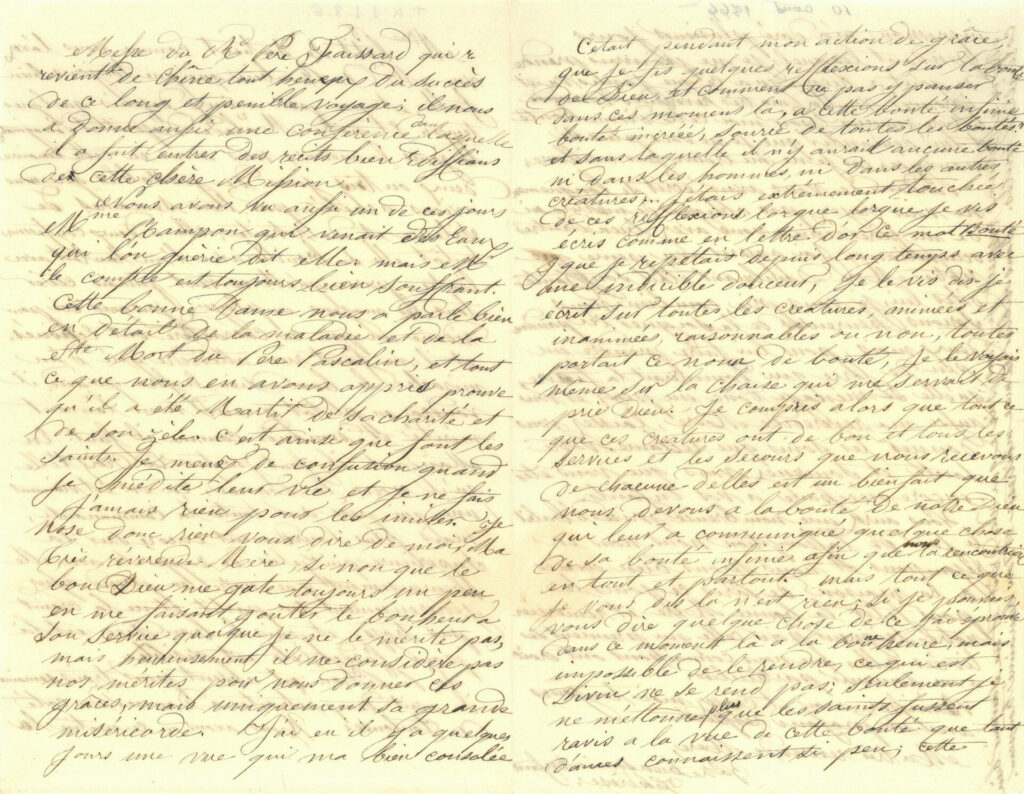 Messe du Rd Père Faissard qui
revient de Chine tout heureux du succès
de ce long et penible voyage; il nous
a donné aussi une conférence dans laquelle
il a fait entrer des recits bien édifians
de cette chere Mission.
Nous avons vu aussi un de ces jours
Mme Rampon qui venait des Eaux
qui l'on guérie dit elle. mais Mr
le compte est toujours bien souffrant.
Cette bonne Dame nous a parlé bien
en détail de la maladie et de la
Ste Mort du Père Pascalin, et tout
ce que nous en avons appris prouve
qu'il a été Martir de sa charité et
de son zèle. c'est ainsi que font les
Saints. Je meurs de confusion quand
je médite leur vie et je ne fais
jamais rien pour les imiter. Je
n'ose donc rien vous dire de moi, Ma
très révérende Mère, si non que le
bon Dieu me gate toujours un peu
en me faisant gouter le bonheur a
son service quoique je ne le mérite pas,
mais heureusement il ne considère pas
nos mérites pour nous donner ces
grâces, mais uniquement sa grande
miséricorde. J'ai eu il y a quelques
jours une vue qui m'a bien consolée
10 aoud 1894
C'était pendant mon action de grâce,
que je fis quelques refflexions sur la bonté
de Dieu, et comment ne pas y panser
dans ces moments là, a cette bonté infinie
bonté increée, source de toutes les bontés
et sans laquelle il n'y aurait aucune bonté
ni dans les hommes, ni dans les autres
créatures. J'étais extrêmement touchée
de ces refflexions lorque lorque je vis
écris comme en lettre d'or ce mot Bonté
que je répétais depuis long temps avec
une indicible douceur, Je le vis dis-je
écrit sur toutes les creatures, animées et
inanimées, raisonnables ou non, toutes
portait ce nom de bonté, je le voyais
même sur la chaise qui me servait de
prie Dieu. Je compris alors que tout ce
que ces creatures ont de bon et tous les
services et les secours que nous recevons
de chacune d'elles est un bienfait que
nous devons a la bonté de notre Dieu
qui leur a communiqué quelque chose
de sa bonté infinie afin que nous la rencontrions
en tout et partout. mais tout ce que
je vous dis la n'est rien; si je pouvais
vous dire quelque chose de ce j'ai éprouvé
dans ce moment là a la bonne heure, mais
impossible de le rendre, ce qui est
Divin ne se rend pas; seulement je
ne m'éttonne plus que les saints fussent
ravis a la vue de cette bonté que tant
d'âmes connaissent si peu; cette